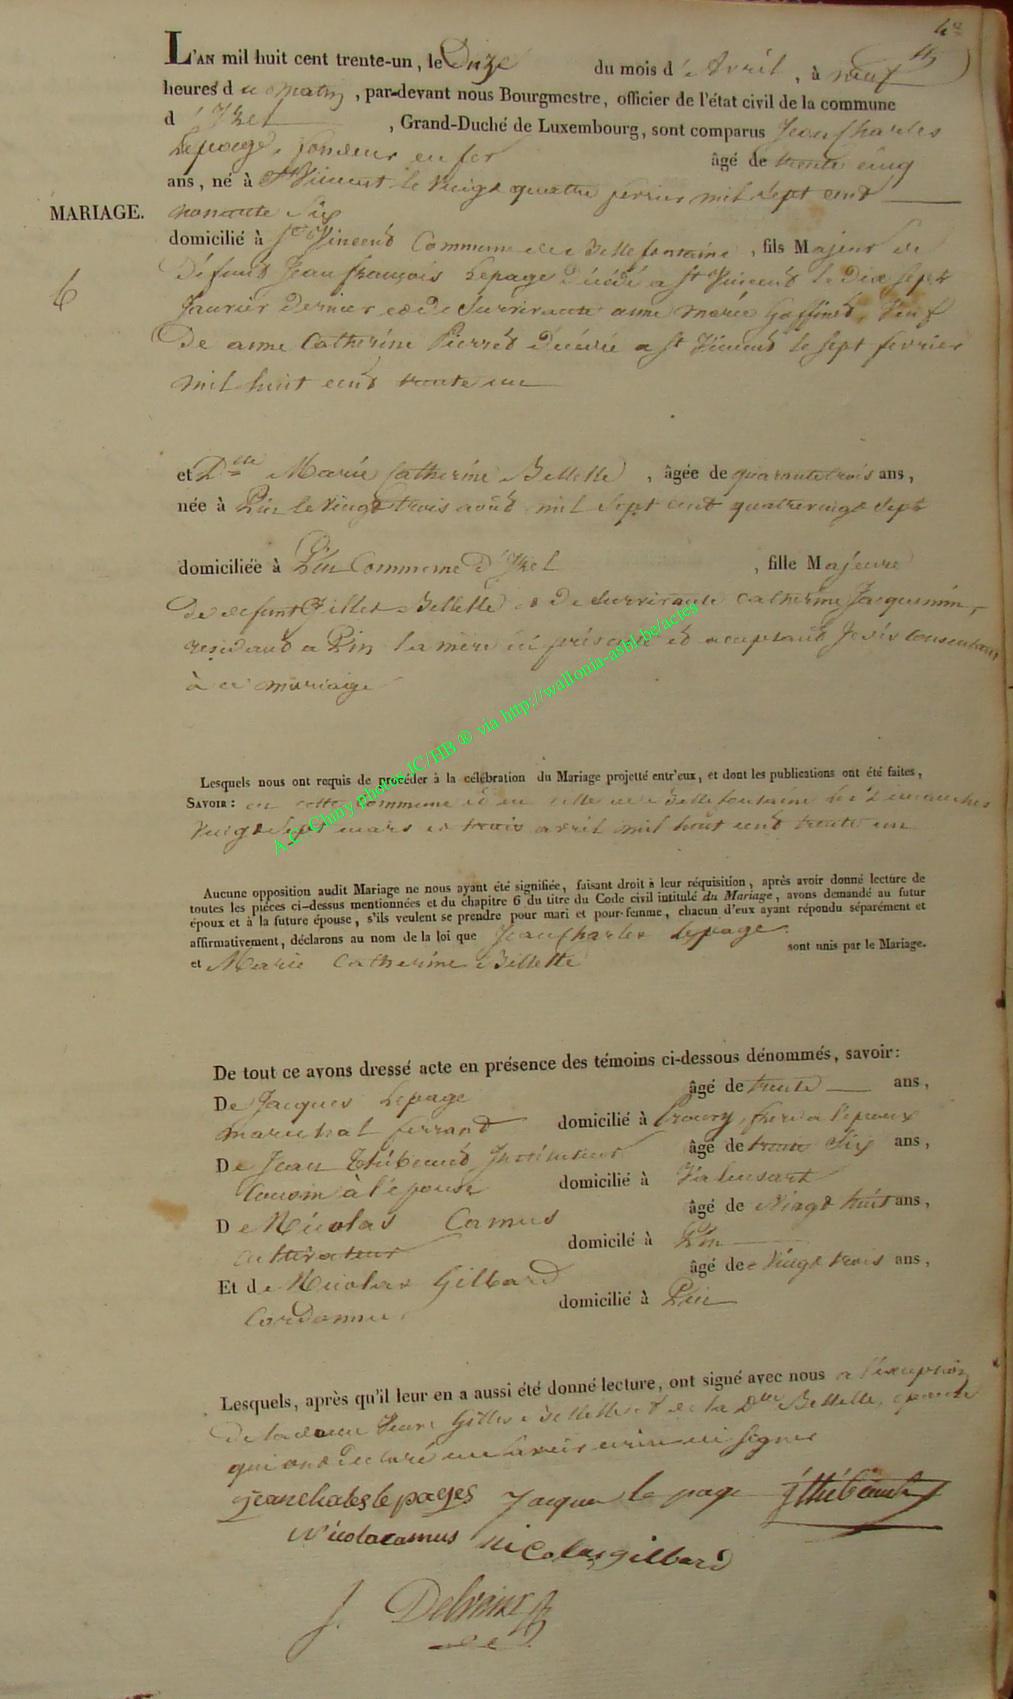 L'AN mil huit cent trente-un, le Onze du mois d'Avril, à neuf
heures du matin, par-devant nous Bourgmestre, officier de l'état civil de la commune
d'Izel, Grand-Duché de Luxembourg, sont comparus Jean Charles
Lepage, fondeur en fer âgé de trente cinq
ans, né à St Vincent le Vingt quattre fevrier mil sept cent
MARIAGE. nonante Six
domicilié à St Vincent Commune de Bellefontaine, fils Majeur de
6 Défunt Jean françois Lepage Décédé a St Vincent le Dix sept
Janvier Dernier et de Survivante anne marie Goffinet, Veuf
De anne Catherine Pierret Décédée a St Vincent le sept fevrier
mil huit cent trente un
et Dlle Marie Catherine Bellette, âgée de quarante trois ans,
née à Pin le Vingt trois août mil sept cent quatrevingt sept
domiciliée à Pin Commune d'Izel, fille Majeure
De defunt Gilles Bellette et De Survivante Catherine Jacquemin,
residant a Pin la mère ici présente et acceptant
à ce mariage
A.c. Chiny photos IC/HB ® via http://wallonia-asbl.be/actes
Lesquels nous ont requis de procéder à la célébration du Mariage projetté entr'eux, et dont les publications ont été faites,
SAVOIR: en cette commune et en celle de Bellefontaine les Dimanches
Vingt Sept mars et trois avril mil huit cent trente un
Aucune opposition audit Mariage ne nous ayant été signifiée, faisant droit à leur réquisition, après avoir donné lecture de
toutes les pièces ci-dessus mentionnées et du chapitre 6 du titre du Code civil intitulé du Mariage, avons demandé au futur
époux et à la future épouse, s'ils veulent se prendre pour mari et pour femme, chacun d'eux ayant répondu séparément et
affirmativement, déclarons au nom de la loi que Jean Charles Lepage
et Marie Catherine Bellette sont unis par le Mariage.
De tout ce avons dressé acte en présence des témoins ci-dessous dénommés, savoir:
De Jacques Lepage âgé de trente ans,
marechal ferrand domicilié à frere a l'epoux
De Jean Thiébaud Instituteur âgé de trente Six ans,
Cousin à l'epouse domicilié à Valansart
De Nicolas Camus âgé de Vingt huit ans,
cultivateur domicilé à Pin
Et de Nicolas Gilbard âgé de Vingt trois ans,
Cordonnier domicilié à Pin
Lesquels, après qu'il leur en a aussi été donné lecture, ont signé avec nous a l'exception
De la Gilles Bellette et de la Dlle Bellette, epouse
qui ont Declaré ne Savoir ecrire ni signer
jean charles le pages Jacques le page JThiébaud
Nicola camus nicolas gilbard
J.